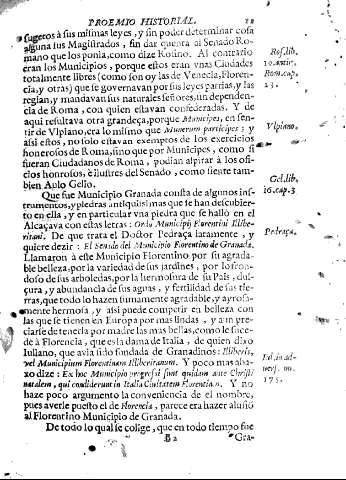 PROEMIO HISTORIAL.
sugetos à sus mismas leyes, y sin poder determinar cosa
alguna sus Magistrados, sin dar quenta al Senado Ro-
mano que los ponia, como dize Rosino. Al contrario
eran los Municipios, porque estos eran vnas Ciudades
totalmente libres (como son oy las de Venecia, Floren-
cia, y otras) que se governavan por sus leyes patrias, y las
regian, y mandavan sus naturales señores, un dependen-
cia de Roma, con quien estavan confederadas. Y de
aqui resultava otra grandeça, porque Municipes, en sen-
tir de Vlpiano, era lo mismo que Munerum participes; y
assi estos, no solo estavan exemptos de los exercicios
honerosos de Roma, sino que por Municipes, como si
fueran Ciudadanos de Roma, podian aspirar à los ofi-
cios honrosos, è ilustres del Senado, como siente tam-
bien Aulo Gelio.
Que fue Municipio Granada consta de algunos ins-
trumentos, y piedras antiquissimas que se han descubier-
to en ella, y en particular vna piedra que se hallò en el
Alcaçava con estas letras: Ordo Municipij Florentini Illibe-
ritani. De que trata el Doctor Pedraça latamente, y
quiere dezir: El Senado del Municipio Florentino de Granada.
Llamaron à este Municipio Florentino por su agrada-
ble belleza, por la variedad de sus jardines, por lo fron-
doso de sus arboledas, por la hermosura de su Pais, dul-
çura, y abundancia de sus aguas, y fertilidad de sus tie-
rras, que todo lo hazen sumamente agradable, y ayrosa-
mente hermosa, y assi puede competir en belleza con
las que se tienen en Europa por mas lindas, y aun pre-
ciarse de tenerla por madre las mas bellas, como le suce-
de à Florencia, que es la dama de Italia, de quien dixo
Iuliano, que avia sido fundada de Granadinos: Illiberis,
vel Municipium Florentinum Illiberitanum. Y poco mas aba-
xo dize: Ex hoc Municipio progressi sunt quidam ante Christi
natalem, qui condiderunt in Italia Civitatem Florentia.n. Y no
haze poco argumento la conveniencia de el nombre,
pues averle puesto el de Florencia, parece era hazer alusiõ
al Florentino Municipio de Granada.
De todo lo qual se colige, que en todo tiempo fue
Gra-
Ros. lib.
10. antir.
Rom. cap.
23.
Vlpiano.
Gel. lib.
16. cap. 3
Pedraça.
175.